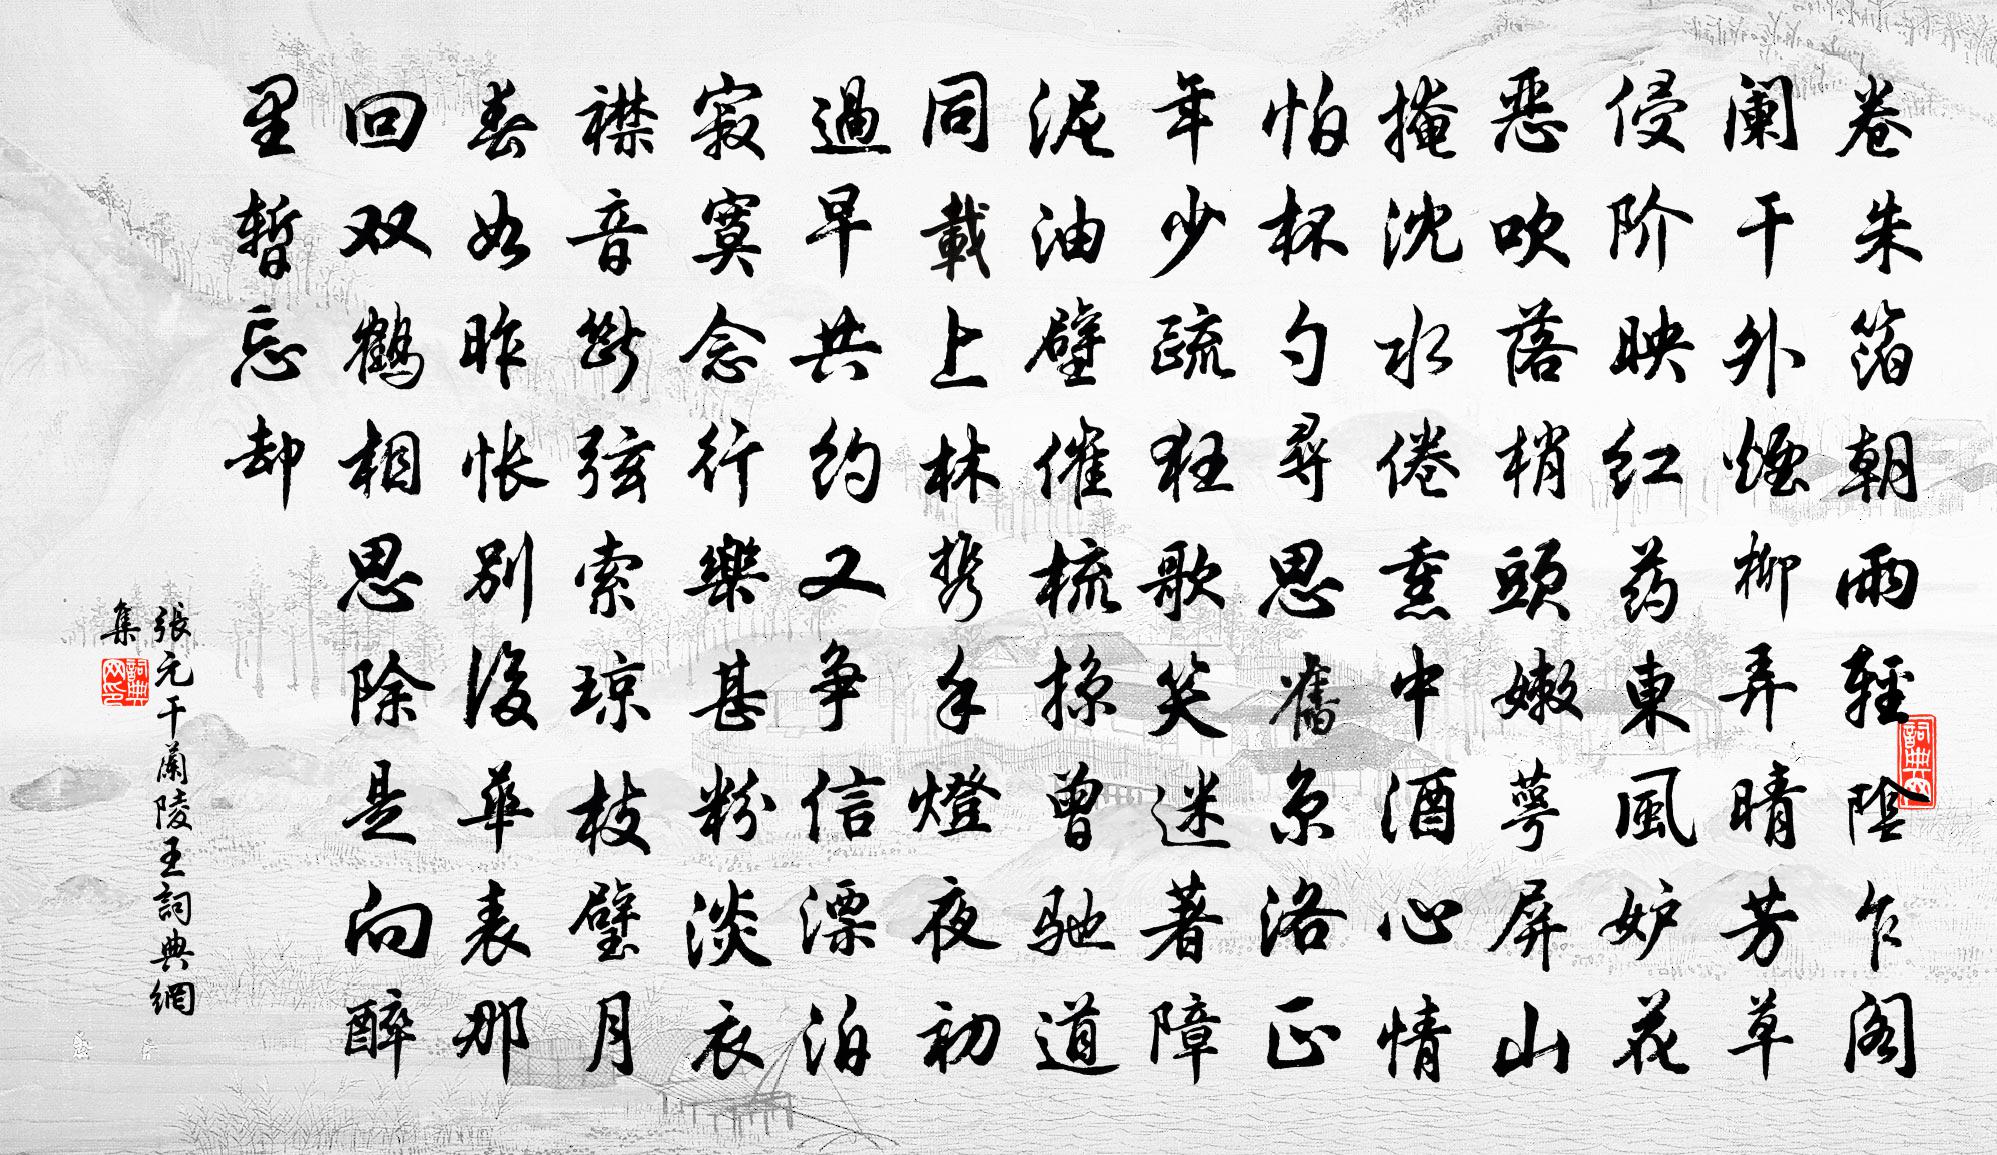 卷朱箔朝雨輕陰乍閣
阑干外煙柳弄晴芳草
侵阶映红药東風妒花
恶吹落梢頭嫩萼屏山
掩沈水倦熏中酒心情
怕杯勺尋思舊京洛正
年少疏狂歌笑迷著障
泥油壁催梳掠曾馳道
同載上林携手燈夜初
過早共約又争信漂泊
寂寞念行樂甚粉淡衣
襟音斷弦索琼枝璧月
春如昨怅别後華表那
回双鶴相思除是向醉
里暫忘却
張元干蘭陵王詞典網
集
詞典网印
詞典网